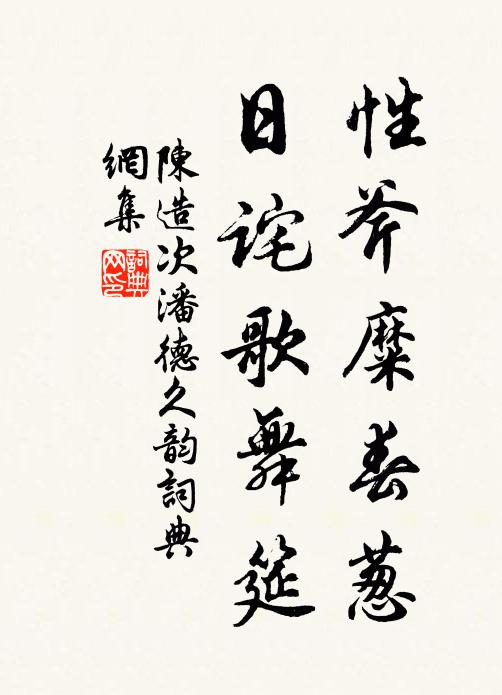 性斧糜春葱
日詫歌舞筵
陳造次潘德久韵詞典
網集
詞典網印